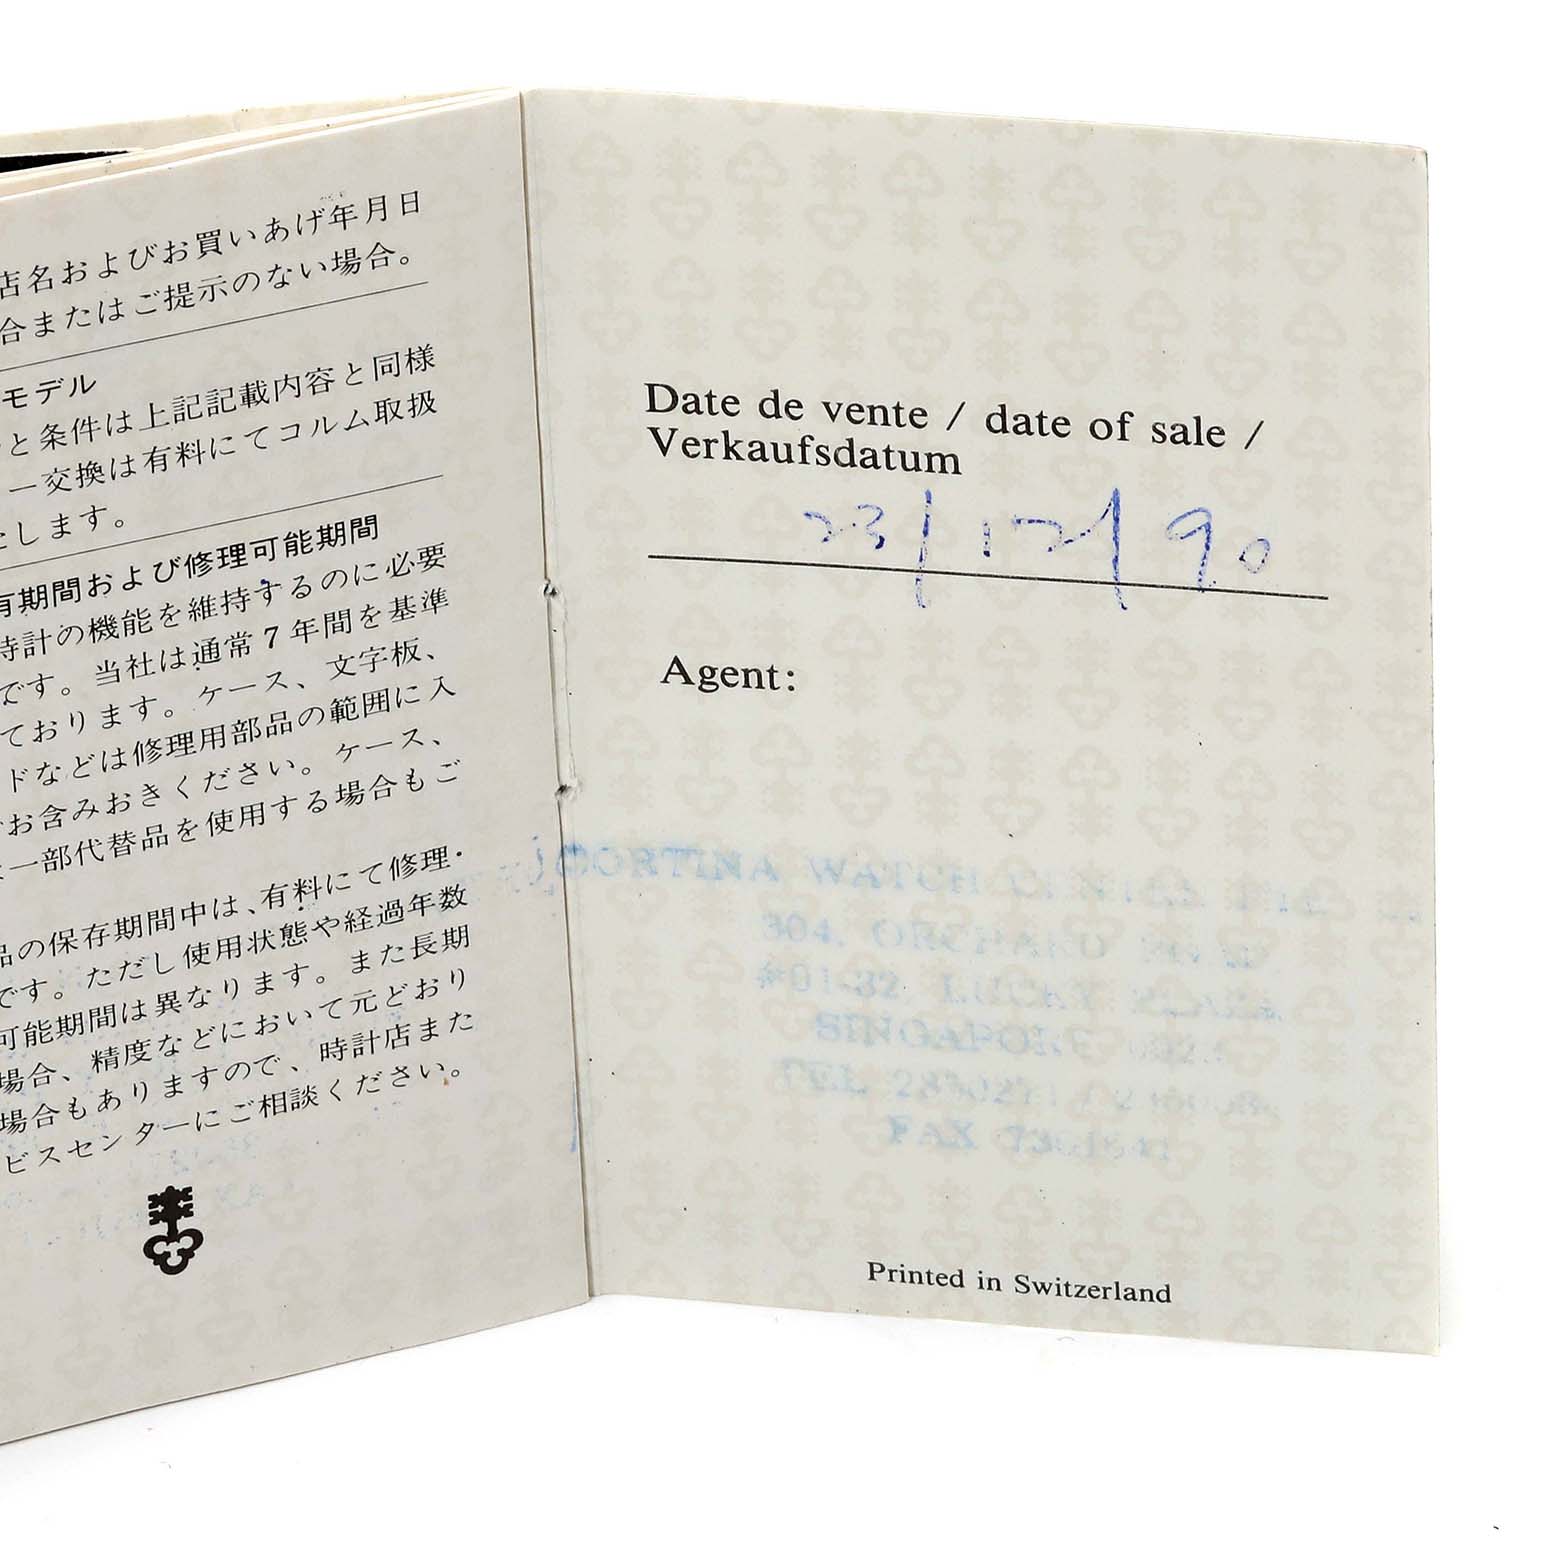 店名およびお買いあげ年月日
合またはご提示のない場合。
モデル
と条件は上記記載内容と同様
ー交換は有料にてコルム取扱
たします。
有期間および修理可能期間
時計の機能を維持するのに必要
です。当社は通常7年間を基準
ております。ケース、文字板、
ドなどは修理用部品の範囲に入
お含みおきください。ケース、
一部代替品を使用する場合もご
品の保存期間中は、有料にて修理・
です。ただし使用状態や経過年数
可能期間は異なります。また長期
場合、精度などにおいて元どおり
場合もありますので、時計店また
ビスセンターにご相談ください。
Date de vente / date of sale /
Verkaufsdatum
23/12/90
Agent:
CORTINA WATCH
304, ORCHARD
#01-32, LUCKY PLAZA
SINGAPORE
TEL
FAX
Printed in Switzerland